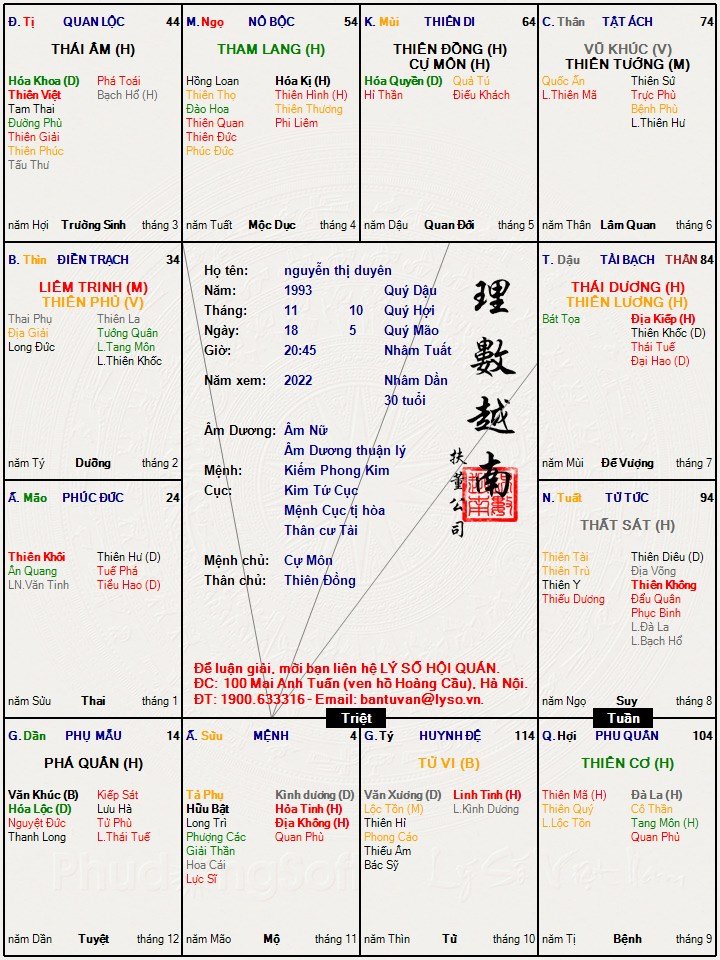 Đ. Tị QUAN LỘC 44
THÁI ÂM (H)
Hóa Khoa (D) Phá Toái
Thiên Việt Bạch Hổ (H)
Tam Thai
Đường Phù
Thiên Giải
Thiên Phúc
Tấu Thư
năm Hợi Trường Sinh tháng 3
M. Ngọ NÔ BỘC 54
THAM LANG (H)
Hồng Loan Hóa Kị (H)
Thiên Thọ Thiên Hình (H)
Đào Hoa Thiên Thương
Thiên Quan Phi Liêm
Thiên Đức
Phúc Đức
năm Tuất Mộc Dục tháng 4
K. Mùi THIÊN DI 64
THIÊN ĐỒNG (H)
CỰ MÔN (H)
Hóa Quyền (D) Quả Tú
Hỉ Thần Điếu Khách
năm Dậu Quan Đới tháng 5
C. Thân TẬT ÁCH 74
VŨ KHÚC (V)
THIÊN TƯỚNG (M)
Quốc Ấn Thiên Sứ
L.Thiên Mã Trực Phù
Bệnh Phù
L.Thiên Hư
năm Thân Lâm Quan tháng 6
B. Thìn ĐIỀN TRẠCH 34
LIÊM TRINH (M)
THIÊN PHỦ (V)
Thai Phụ Thiên La
Địa Giải Tướng Quân
Long Đức L.Tang Môn
L.Thiên Khốc
năm Tý Dưỡng tháng 2
Họ tên: nguyễn thị duyên
Năm: 1993 Quý Dậu
Tháng: 11 10 Quý Hợi
Ngày: 18 5 Quý Mão
Giờ: 20:45 Nhâm Tuất
Năm xem: 2022 Nhâm Dần
30 tuổi
Âm Dương: Âm Nữ
Âm Dương thuận lý
Mệnh: Kiếm Phong Kim
Cục: Kim Tứ Cục
Mệnh Cục tị hòa
Thân cư Tài
Mệnh chủ: Cự Môn
Thân chủ: Thiên Đồng
理數越南
扶董公司
Để luận giải, mời bạn liên hệ LÝ SỐ HỘI QUÁN.
ĐC: 100 Mai Anh Tuấn (ven hồ Hoàng Cầu), Hà Nội.
ĐT: 1900.633316 - Email: bantuvan@lyso.vn.
T. Dậu TÀI BẠCH THÂN 84
THÁI DƯƠNG (H)
THIÊN LƯƠNG (H)
Bát Tọa Địa Kiếp (H)
Thiên Khốc (D)
Thái Tuế
Đại Hao (D)
năm Mùi Đế Vượng tháng 7
Ấ. Mão PHÚC ĐỨC 24
Thiên Khôi Thiên Hư (D)
Ân Quang Tuế Phá
LN.Văn Tinh Tiểu Hao (D)
năm Sửu Thai tháng 1
N. Tuất TỬ TỨC 94
THẤT SÁT (H)
Thiên Tài Thiên Diêu (D)
Thiên Trù Địa Võng
Thiên Y Thiên Không
Thiếu Dương Đẩu Quân
Phục Binh
L.Đà La
L.Bạch Hổ
năm Ngọ Suy tháng 8
Triệt
Tuần
G. Dần PHỤ MẪU 14
PHÁ QUÂN (H)
Văn Khúc (B) Kiếp Sát
Hóa Lộc (D) Lưu Hà
Nguyệt Đức Tử Phù
Thanh Long L.Thái Tuế
năm Dần Tuyệt tháng 12
Ấ. Sửu MỆNH 4
Tả Phụ Kình dương (D)
Hữu Bật Hỏa Tinh (H)
Long Trì Địa Không (H)
Phượng Các Quan Phù
Giải Thần
Hoa Cái
Lực Sĩ
năm Mão Mộ tháng 11
G. Tý HUYNH ĐỆ 114
TỬ VI (B)
Văn Xương (D) Linh Tinh (H)
Lộc Tồn (M) L.Kình Dương
Thiên Hỉ
Phong Cáo
Thiếu Âm
Bác Sỹ
năm Thìn Tử tháng 10
Q. Hợi PHU QUÂN 104
THIÊN CƠ (H)
Thiên Mã (H) Đà La (H)
Thiên Quý Cô Thần
L.Lộc Tồn Tang Môn (H)
Quan Phủ
năm Tị Bệnh tháng 9
Lý Số Việt Nam